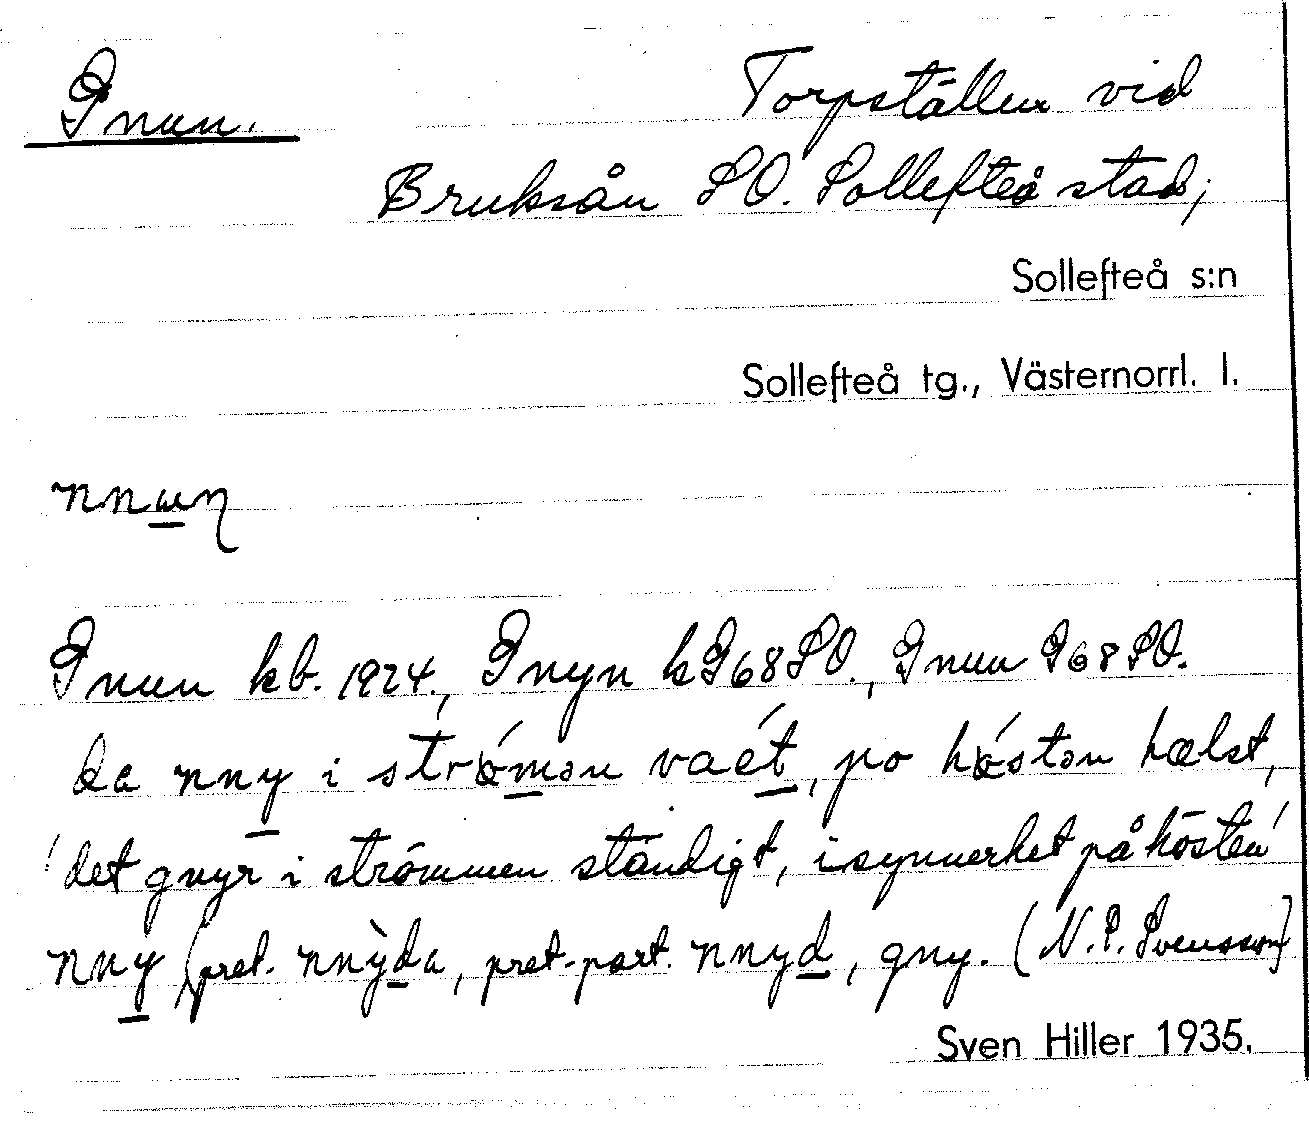 Gnun.
Torpställen vid
Bruksån SO. Sollefteå stad;
Sollefteå s:n
Sollefteå tg., Västernorrl. l.
nnuɳ
Gnun kb. 1924., Gnyn k G68SO., Gnun G68SO.
da nny i strǿmən vaét, po hǿstən hælst,
'det gnyr i strömmen ständigt, isynnerhet på hösten'
nny (pret. nnỳda, pret.-part. nnyd, gny. (N.P. Svensson)
Sven Hiller 1935.